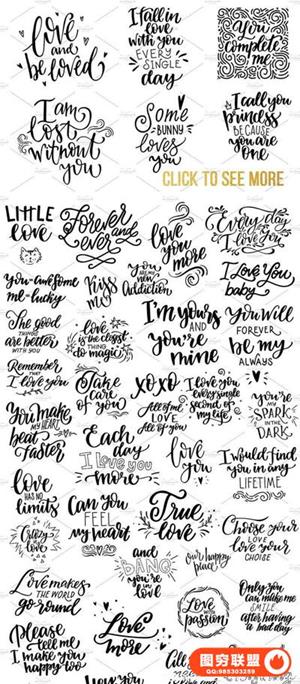 love
and
be loved
I fall in
love with
you
EVERY
SINGLE
day
You
complete
me
I am
lost
without
you
Some
BUNNY
loves
you
I call you
princess
BECAUSE
YOU ARE
ONE
CLICK TO SEE MORE
LITTLE
love
Forever
and
ever
love
you
more
Every day
I love you
You awesome
me-lucky
Kiss
my
you
are my new
Addiction
I Love You
baby
The good
THINGS
are better
WITH YOU
love
is the closest
THING
to magic
I'm yours
AND
you're
mine
You will
FOREVER
be my
ALWAYS
Remember
THAT
I love you
Take
care
of you
XOXO
All of me
LOVES
All of you
I love you
every single
second of my
life
YOU'RE
MY
SPARK
IN THE
DARK
You make
MY HEART
beat
faster
Each
day
I love you
more
love
you
I would find
you in any
LIFETIME
love
HAS NO
limits
Can you
FEEL
my heart
True
love
Choose your
love
LOVE your
choice
Crazy
in
Love
and
BANG
you're
in love
our happy
place
Love makes
THE WORLD
go round
Love
Love
passion
Only you
can make me
SMILE
after having
a bad day
Please
tell me
I make you
happy too
All
Love
图穷联盟
QQ:985303259